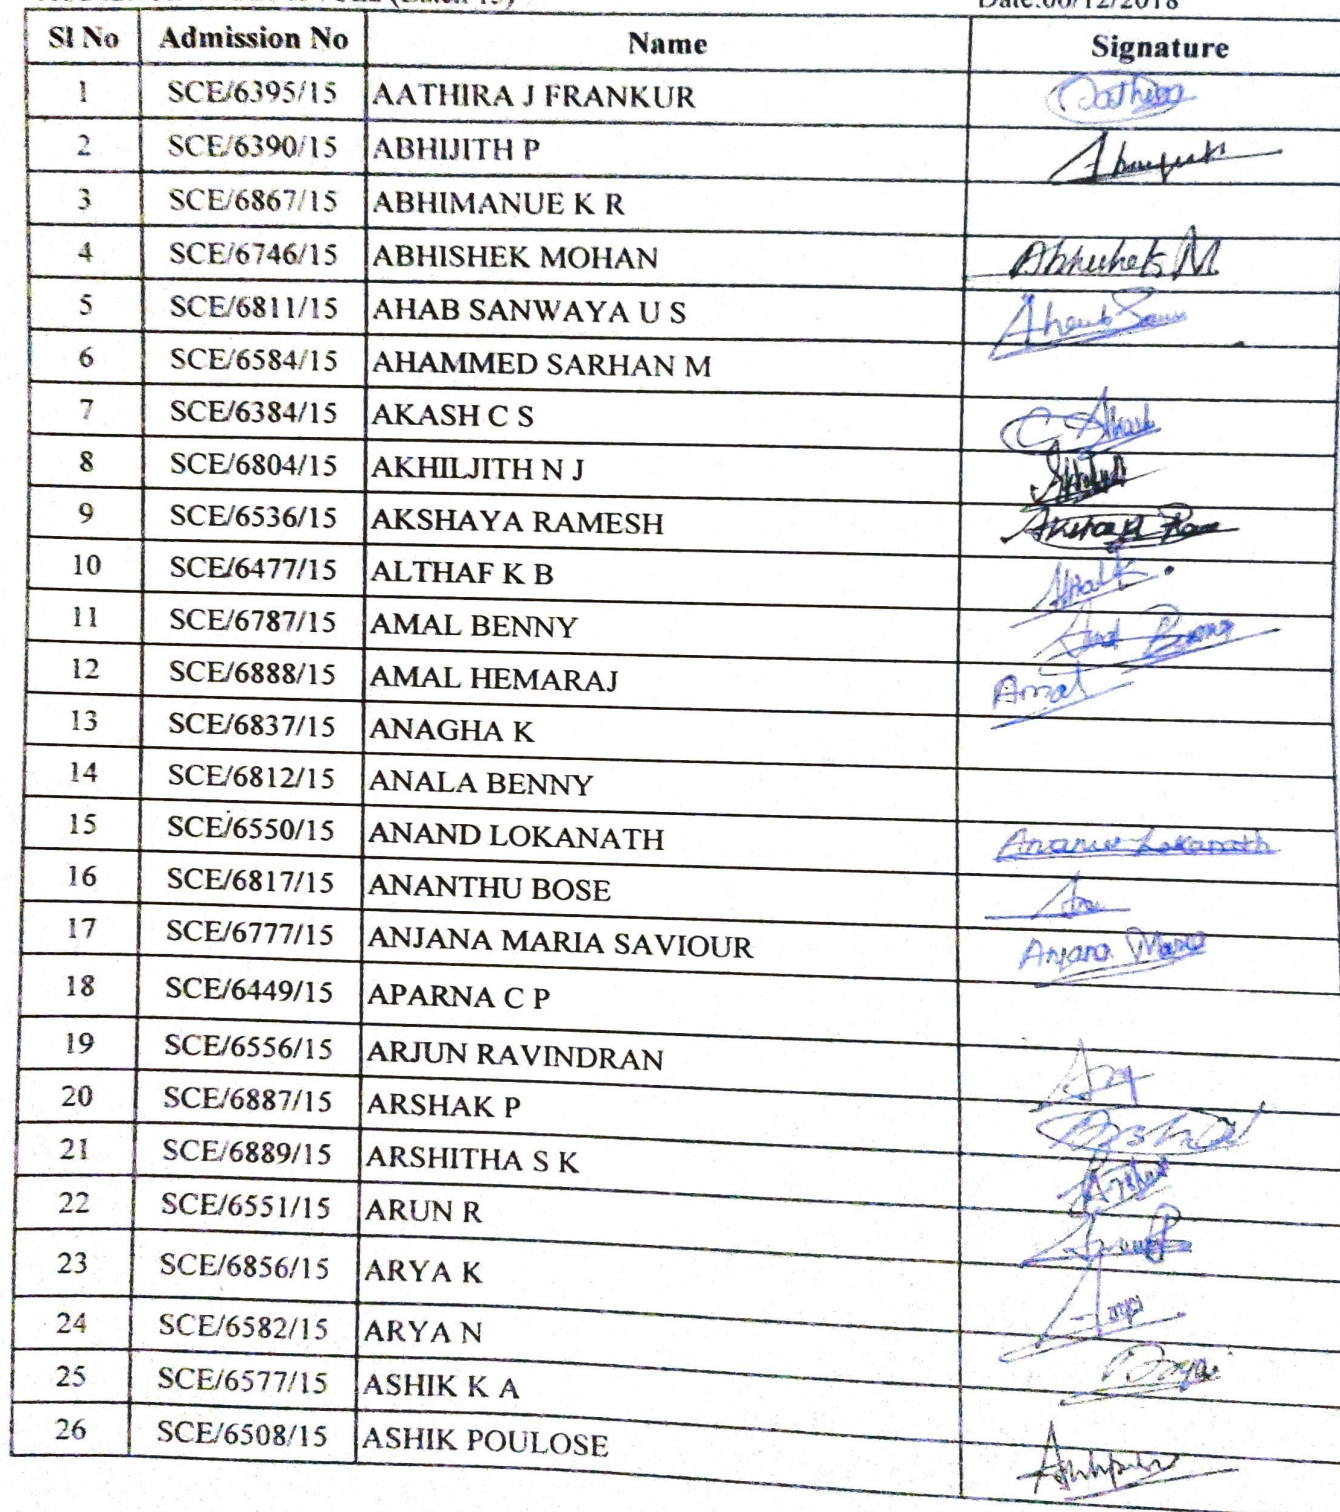 Date:06/12/2018
Sl No Admission No Name Signature
1 SCE/6395/15 AATHIRA J FRANKUR Aathira
2 SCE/6390/15 ABHIJITH P
3 SCE/6867/15 ABHIMANUE K R
4 SCE/6746/15 ABHISHEK MOHAN Abhishek M
5 SCE/6811/15 AHAB SANWAYA U S
6 SCE/6584/15 AHAMMED SARHAN M
7 SCE/6384/15 AKASH C S
8 SCE/6804/15 AKHILJITH N J
9 SCE/6536/15 AKSHAYA RAMESH
10 SCE/6477/15 ALTHAF K B
11 SCE/6787/15 AMAL BENNY
12 SCE/6888/15 AMAL HEMARAJ Amal
13 SCE/6837/15 ANAGHA K
14 SCE/6812/15 ANALA BENNY
15 SCE/6550/15 ANAND LOKANATH Anand Lokanath
16 SCE/6817/15 ANANTHU BOSE
17 SCE/6777/15 ANJANA MARIA SAVIOUR Anjana Maria
18 SCE/6449/15 APARNA C P
19 SCE/6556/15 ARJUN RAVINDRAN
20 SCE/6887/15 ARSHAK P
21 SCE/6889/15 ARSHITHA S K
22 SCE/6551/15 ARUN R
23 SCE/6856/15 ARYA K
24 SCE/6582/15 ARYA N
25 SCE/6577/15 ASHIK K A
26 SCE/6508/15 ASHIK POULOSE